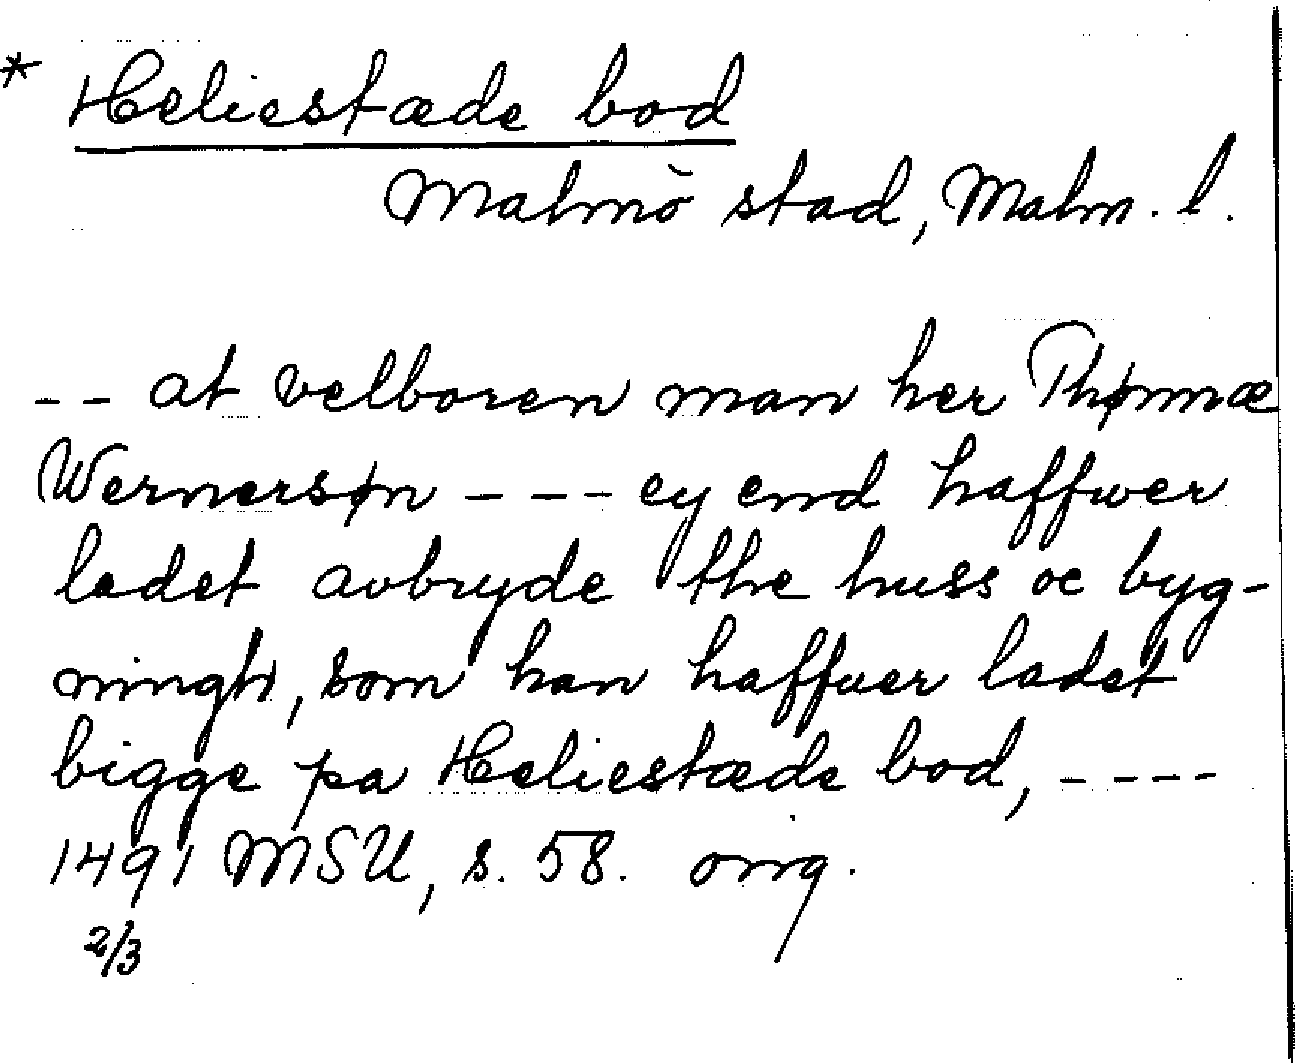 * Heliestæde bod
Malmö stad, Malm. l.
-- at velboren man her Thønnæ
Wernersøn --- ey end haffwer
ladet avbryde the huss oc byg-
ningh, som han haffuer ladet
bigge pa Heliestæde bod, ----
1491 MSU, s. 58. orig.
2/3